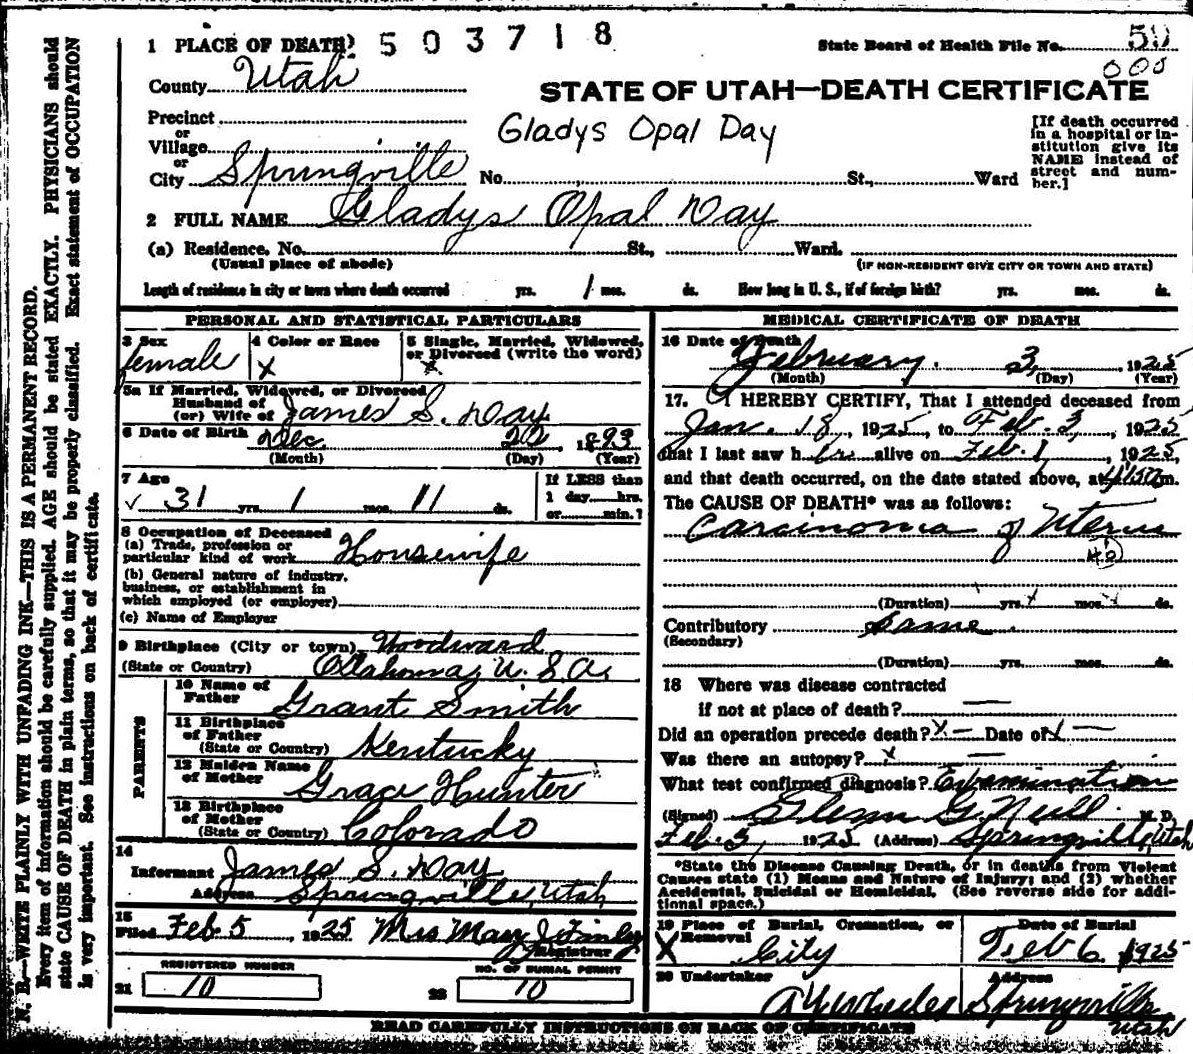 503718
State Board of Health File No. 50
000
STATE OF UTAH—DEATH CERTIFICATE
Gladys Opal Day
[If death occurred
in a hospital or in-
stitution give its
NAME instead of
street and num-
ber.]
1 PLACE OF DEATH
County Utah
Precinct
or
Village
or
City Springville No. St., Ward
2 FULL NAME Gladys Opal Day
(a) Residence, No. St., Ward.
(Usual place of abode) (IF NON-RESIDENT GIVE CITY OR TOWN AND STATE)
Length of residence in city or town where death occurred yrs. 1 mos. ds. How long in U. S., if of foreign birth? yrs. mos. ds.
PERSONAL AND STATISTICAL PARTICULARS
3 Sex 4 Color or Race 5 Single, Married, Widowed,
or Divorced (write the word)
female X X
5a If Married, Widowed, or Divorced
Husband of
(or) Wife of James S. Day
6 Date of Birth Dec 22 1893
(Month) (Day) (Year)
7 Age If LESS than
1 day hrs.
or min.?
31 yrs. 1 mos. 11 ds.
8 Occupation of Deceased
(a) Trade, profession or
particular kind of work Housewife
(b) General nature of industry,
business, or establishment in
which employed (or employer)
(c) Name of Employer
9 Birthplace (City or town) Woodward
(State or Country) Oklahoma, U. S. A.
PARENTS
10 Name of
Father Grant Smith
11 Birthplace
of Father
(State or Country) Kentucky
12 Maiden Name
of Mother Grace Hunter
13 Birthplace
of Mother
(State or Country) Colorado
14
Informant James S. Day
Address Springville, Utah
15
Filed Feb 5, 1925 Mrs Mary J Finley
Registrar
REGISTERED NUMBER NO. OF BURIAL PERMIT
21 10 22 10
MEDICAL CERTIFICATE OF DEATH
16 Date of Death
February 3, 1925
(Month) (Day) (Year)
17. I HEREBY CERTIFY, That I attended deceased from
Jan. 18, 1925, to Feb. 3, 1925
that I last saw her alive on Feb. 1, 1925,
and that death occurred, on the date stated above, at m.
The CAUSE OF DEATH* was as follows:
Carcinoma of Uterus
(Duration) yrs. mos. ds.
Contributory Same
(Secondary)
(Duration) yrs. mos. ds.
18 Where was disease contracted
if not at place of death? —
Did an operation precede death? X — Date of X —
Was there an autopsy? X —
What test confirmed diagnosis? Examination
(Signed) Glenn G. Neill M. D.
Feb. 3, 1925 (Address) Springville, Utah
*State the Disease Causing Death, or in deaths from Violent
Causes state (1) Means and Nature of Injury; and (2) whether
Accidental, Suicidal or Homicidal. (See reverse side for addi-
tional space.)
19 Place of Burial, Cremation, or
Removal Date of Burial
X City Feb 6. 1925
20 Undertaker Address
A Y Wheeler Springville
Utah
READ CAREFULLY INSTRUCTIONS ON BACK OF CERTIFICATE
N. B.—WRITE PLAINLY WITH UNFADING INK—THIS IS A PERMANENT RECORD.
Every item of information should be carefully supplied. AGE should be stated EXACTLY. PHYSICIANS should
state CAUSE OF DEATH in plain terms, so that it may be properly classified. Exact statement of OCCUPATION
is very important. See instructions on back of certificate.